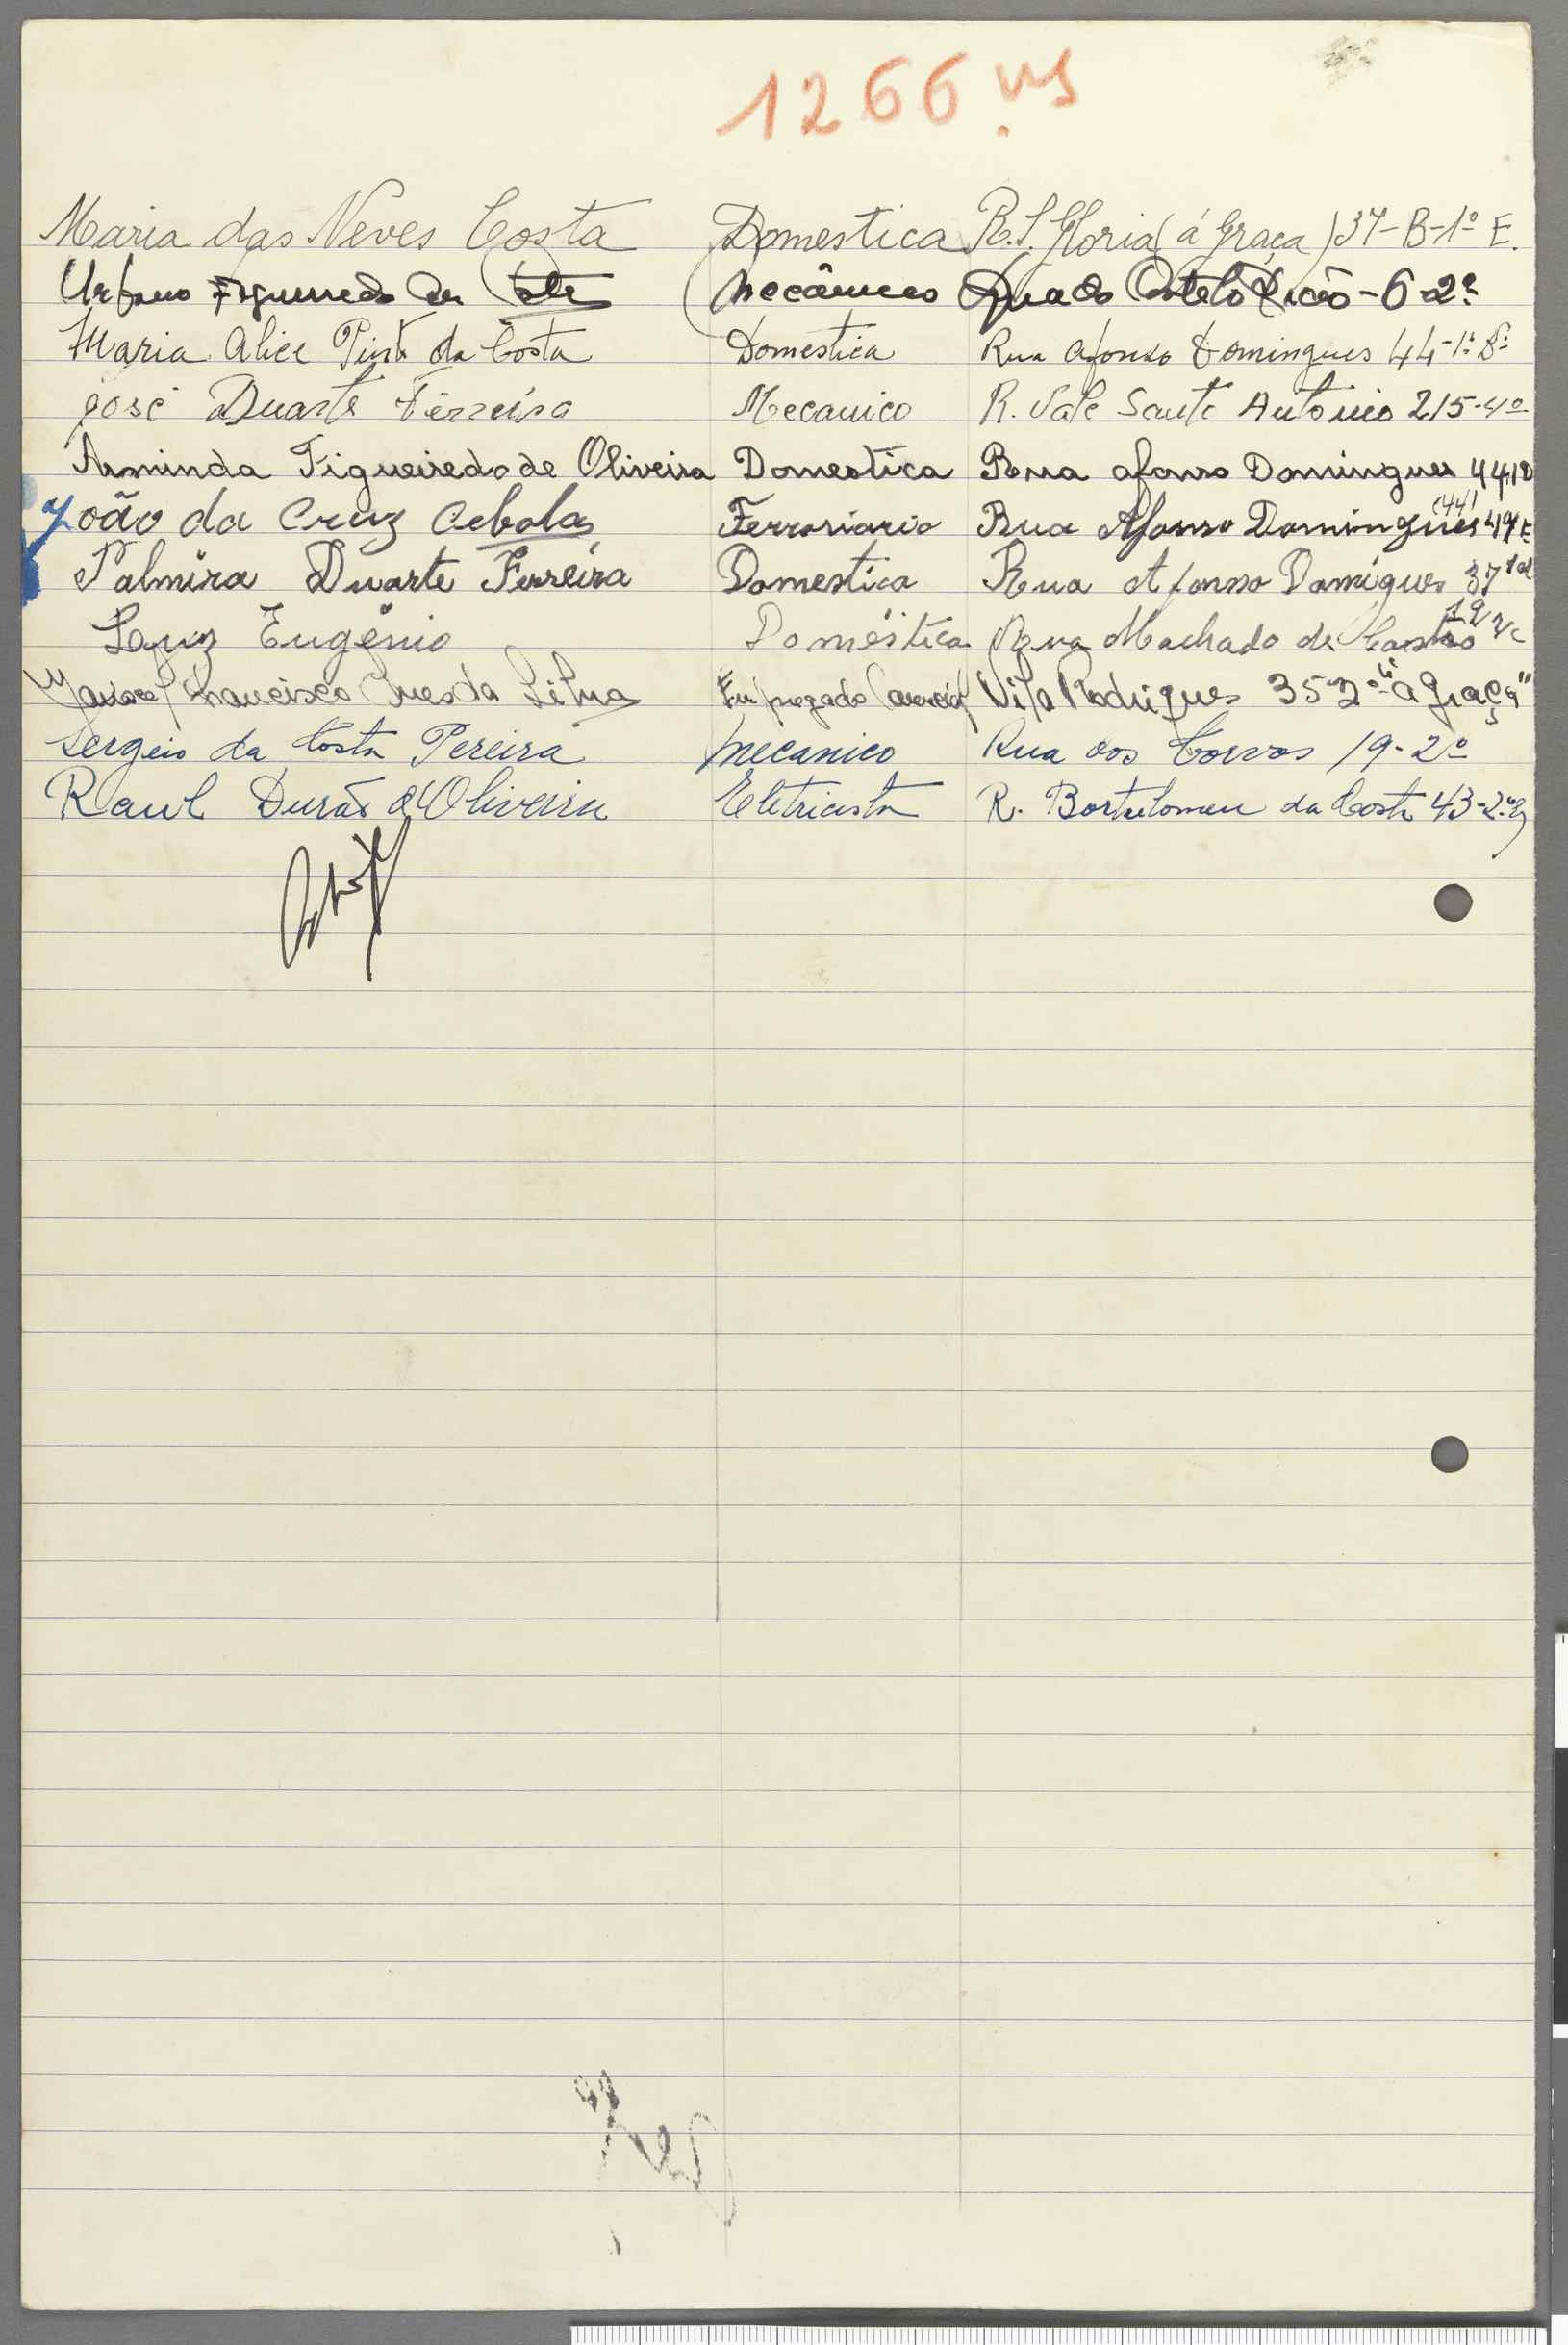 1266 vs
Maria das Neves Costa Domestica R. S. Gloria (á Graça) 37-B-1º E.
Urbano Figueiredo da Mecânico Castelo Picão - 6 - 2º
Maria Alice Pinto da Costa Domestica Rua Afonso Domingues 44-1º Dº
José Duarte Ferreira Mecanico R. Vale Santo António 215-4º
Arminda Figueiredo de Oliveira Domestica Rua Afonso Domingues 44 1 D
João da Cruz Cebola Ferroviario Rua Afonso Domingues (44)
Palmira Duarte Ferreira Domestica Rua Afonso Domigues 37
Luz Eugênio Doméstica Rua Machado de Castro
Francisco da Silva Empregado Comercial Vila Rodrigues 35 2º "á Graça"
Sergio da Costa Pereira Mecanico Rua dos Corvos 19-2º
Raul Durão d'Oliveira Eletricista R. Bartolomeu da Costa 43-2º